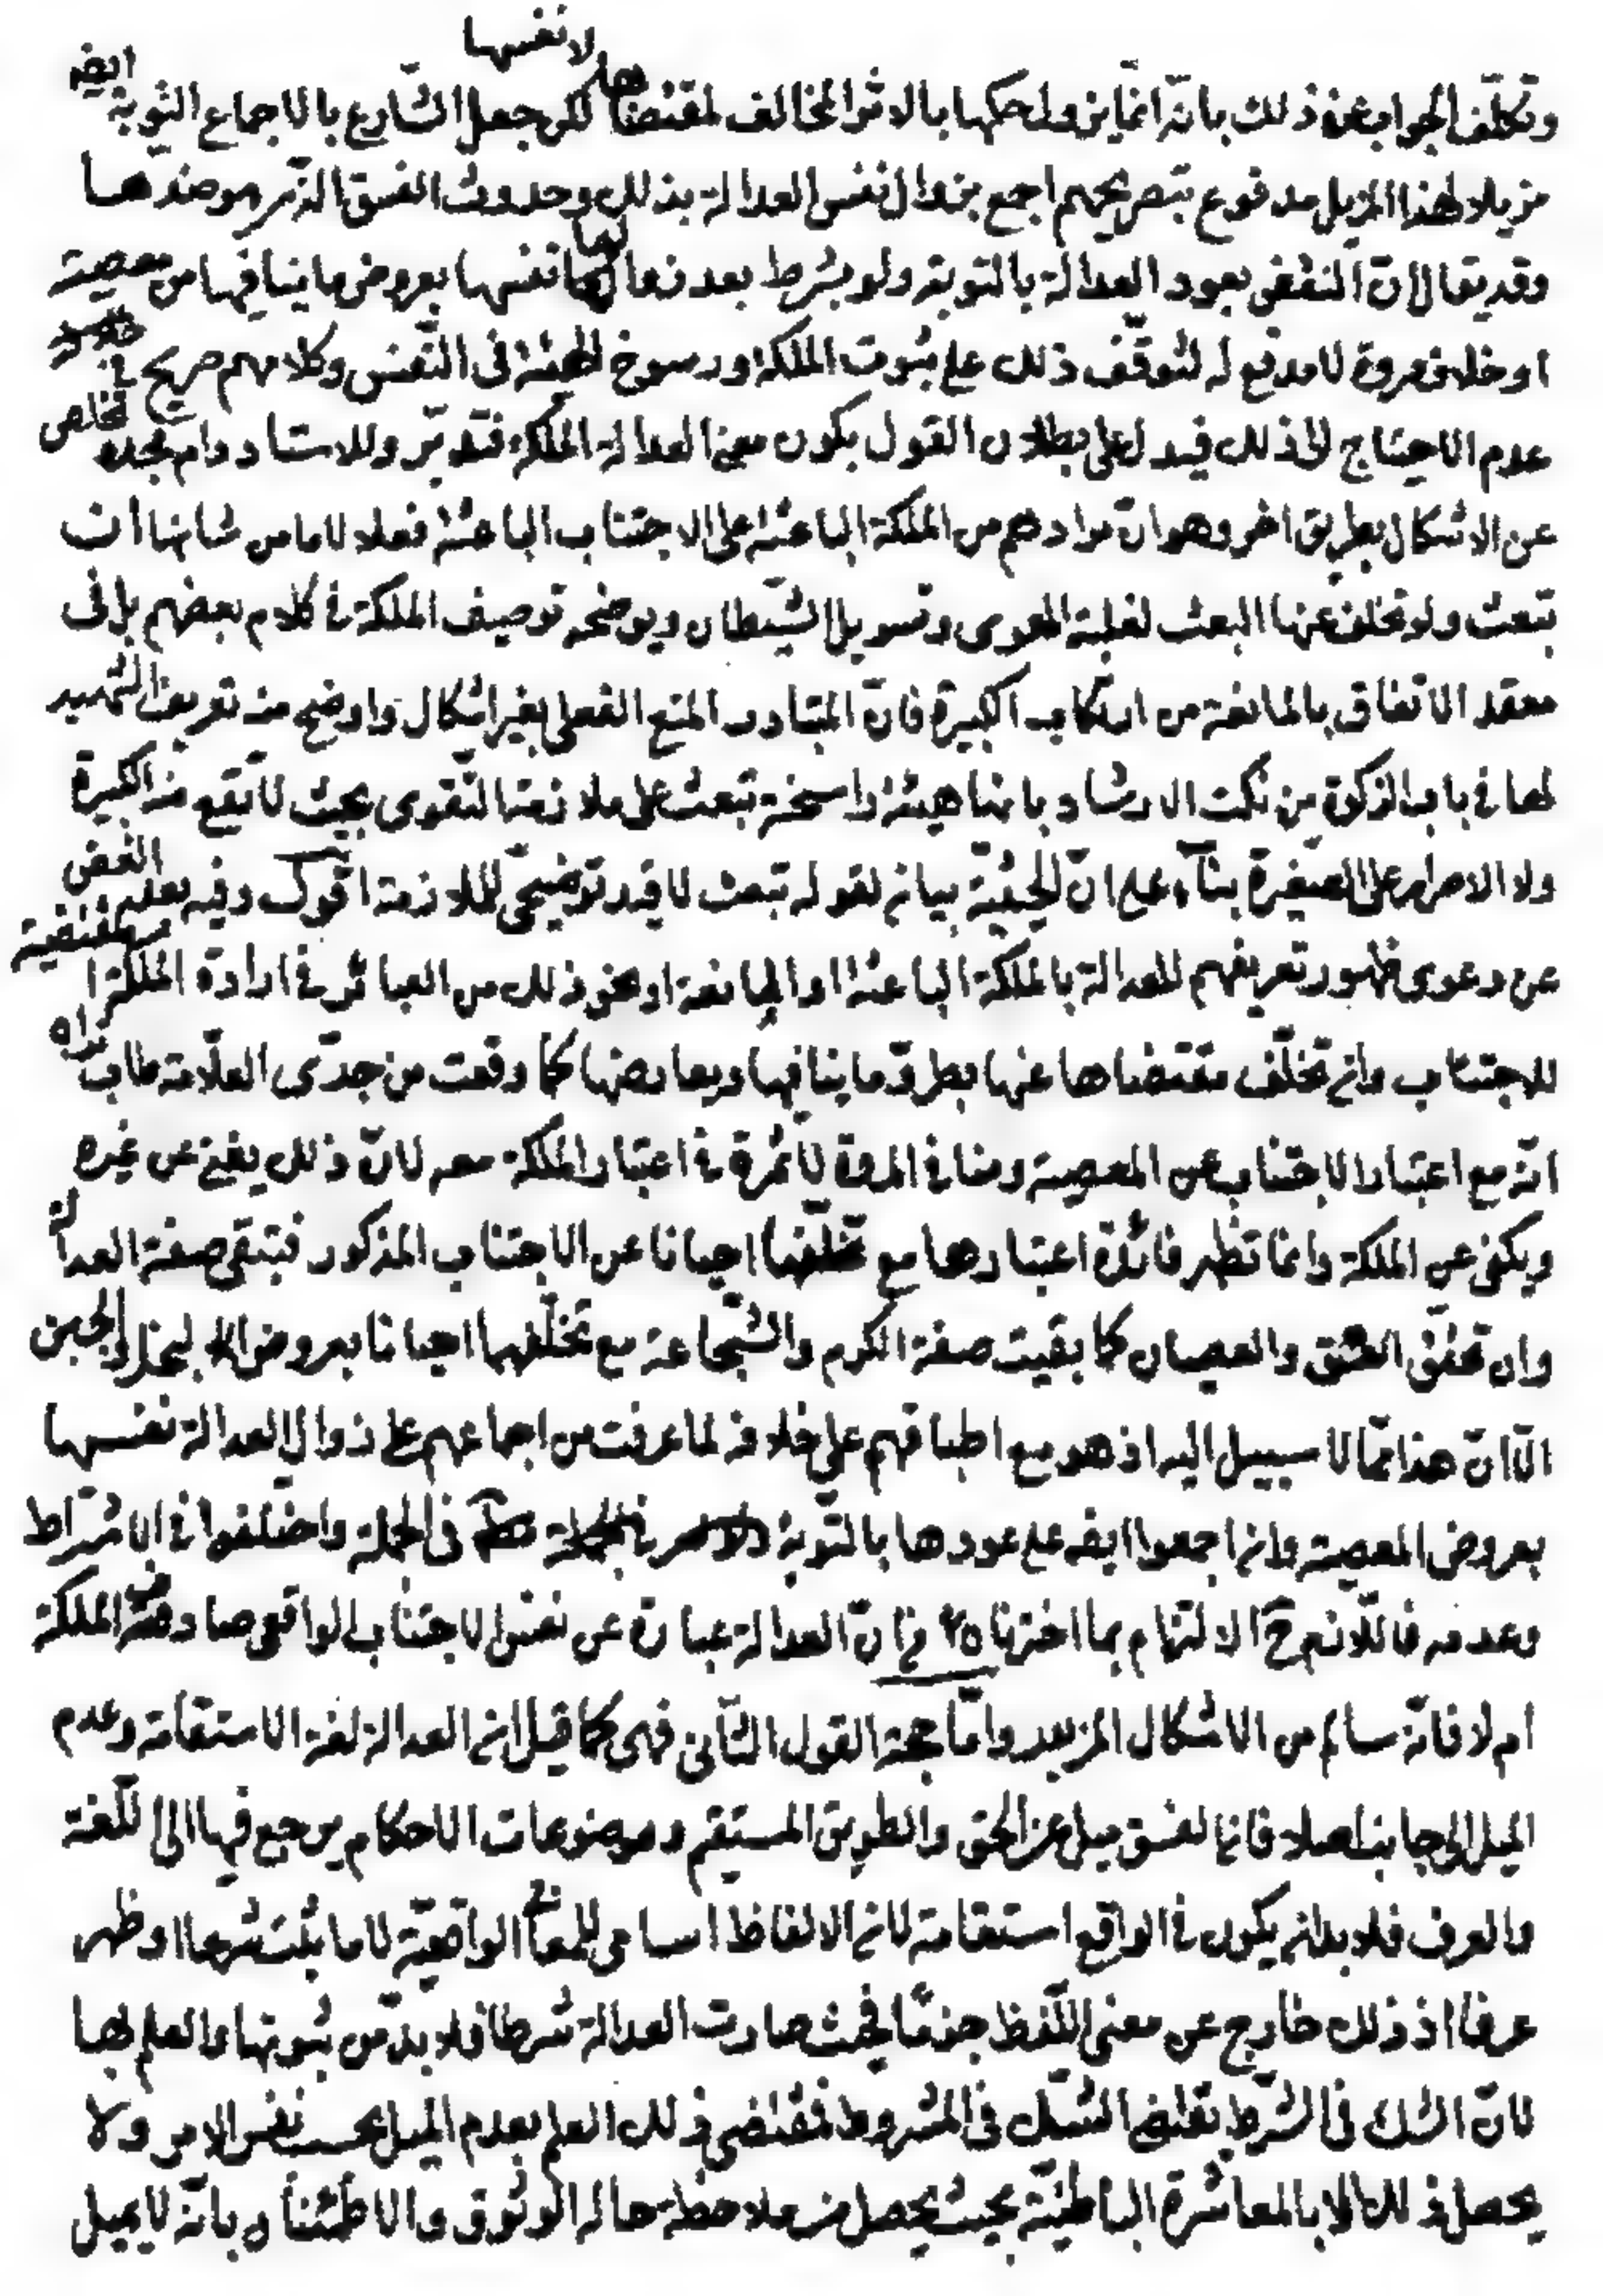 لا نفسها
وتكلّف الجواب عن ذلك بانّه انما يزول حكمها بالاثر المخالف لمقتضاها لكن جعل الشارع بالاجماع التوبة ايضه
مزيلا لهذا المزيل مدفوع بتصريحهم اجمع بزوال نفس العدالة بذلك وحدوث الفسق الذى هو ضدها
وقد يقال ان النقض بعود العدالة بالتوبة ولو بشرط بعد زوالها نفسها بعروض ما ينافيها من معصية
او خلاف مروة لا مدفع له لتوقّف ذلك على ثبوت الملكة ورسوخ الهيئة فى النّفس وكلامهم صريح فى
عدم الاحتياج الى ذلك فيدل على بطلان القول بكون معنى العدالة الملكة فتدبّر وللاستاد دام مجده تخلص
عن الاشكال بطريق اخر وهو انّ مرادهم من الملكة الباعثة على الاجتناب الباعثة فعلا لا ما من شانها ان
تبعث ولو تخلف عنها البعث لغلبة الهوى وتسويل الشّيطان ويوضحه توصيف الملكة فى كلام بعضهم بل فى
معقد الاتفاق بالمانعة من ارتكاب الكبيرة فانّ المتبادر المنع الفعلى بغير اشكال واوضح منه تعريف الشهيد
لها فى باب الزكوة من نكت الارشاد بانها هيئة راسخة تبعث على ملازمة التّقوى بحيث لا تقع منه الكبيرة
ولا الاصرار على الصغيرة بناء على انّ الحيثيّة بيان لقوله تبعث لا قيد توضيحى للملازمة اقول وفيه بعد الغض
عن دعوى ظهور تعريفهم للعدالة بالملكة الباعثة او المانعة او نحو ذلك من العبائر فى ارادة الملكة المقتضية
للاجتناب وان تخلّف مقتضاها عنها بطروّ ما ينافيها ويعارضها كما وقعت من جدّى العلّامة طاب ثراه
انّه مع اعتبار الاجتناب عن المعصية ومنافى المروة لا ثمرة فى اعتبار الملكة معه لانّ ذلك يغنى عن غيره
ويكفى عن الملكة وانما تظهر فائدة اعتبارها مع تخلّفها احيانا عن الاجتناب المذكور فتبقى صفة العدالة
وان تحقّق الفسق والعصيان كما بقيت صفة الكرم والشّجاعة مع تخلّفهما احيانا بعروض البخل والجبن
الّا انّ هذا ممّا لا سبيل اليه اذ هو مع اطباقهم على خلافه لما عرفت من اجماعهم على زوال العدالة نفسها
بعروض المعصية وان اجمعوا ايضه على عودها بالتّوبة فى الجملة واختلفوا فى اشتراط
وعدمه فاللّازم ح الالتزام بما اخترنا من انّ العدالة عبارة عن نفس الاجتناب الواقعى صادف الملكة
ام لا فانّه سالم من الاشكال المزبور وامّا حجة القول الثّانى فهى كما قيل ان العدالة لغة الاستقامة وعدم
الميل الى جانب اصلا فان الفسق ميل عن الحق والطريق المستقيم وموضوعات الاحكام يرجع فيها الى اللّغة
والعرف فلا بد ان يكون فى الواقع استقامة لان الالفاظ اسامى للمعانى الواقعيّة لا ما يثبت شرعا او ظهر
عرفا اذ ذلك خارج عن معنى اللّفظ جزمًا فحيث صارت العدالة شرطا فلا بدّ من ثبوتها والعلم بها
لانّ الشك فى الشّرط يقتضى الشك فى المشروط فمقتضى ذلك العلم بعدم الميل بحسب نفس الامر ولا
يحصل ذلك الا بالمعاشرة الباطنيّة بحيث يحصل من ملاحظة حاله الوثوق والاطمئنان بانّه لا يميل